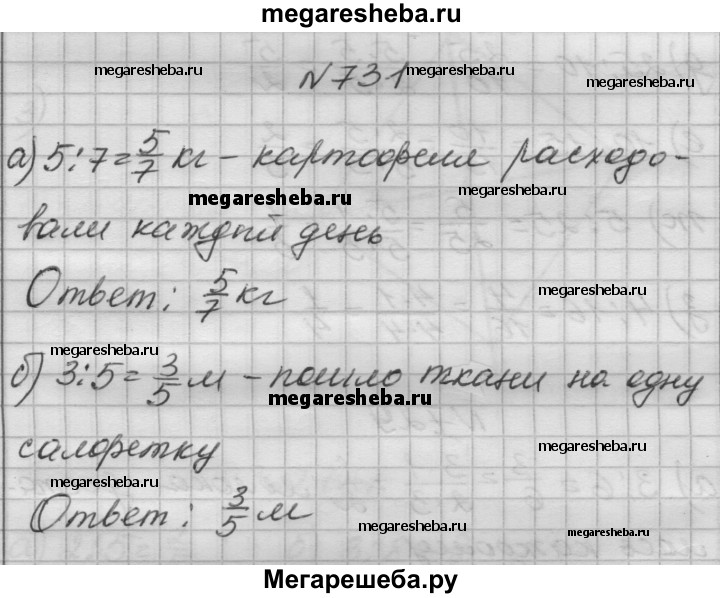 megaresheba.ru
№731
megaresheba.ru megaresheba.ru megaresheba.ru
а) 5:7=5/7 кг – картофеля расходо-
megaresheba.ru megaresheba.ru
вали каждый день
Ответ: 5/7 кг
megaresheba.ru
megaresheba.ru
б) 3:5=3/5 м – пошло ткани на одну
megaresheba.ru
салфетку
megaresheba.ru
megaresheba.ru
Ответ: 3/5 м
megaresheba.ru megaresheba.ru
Мегарешеба.ру